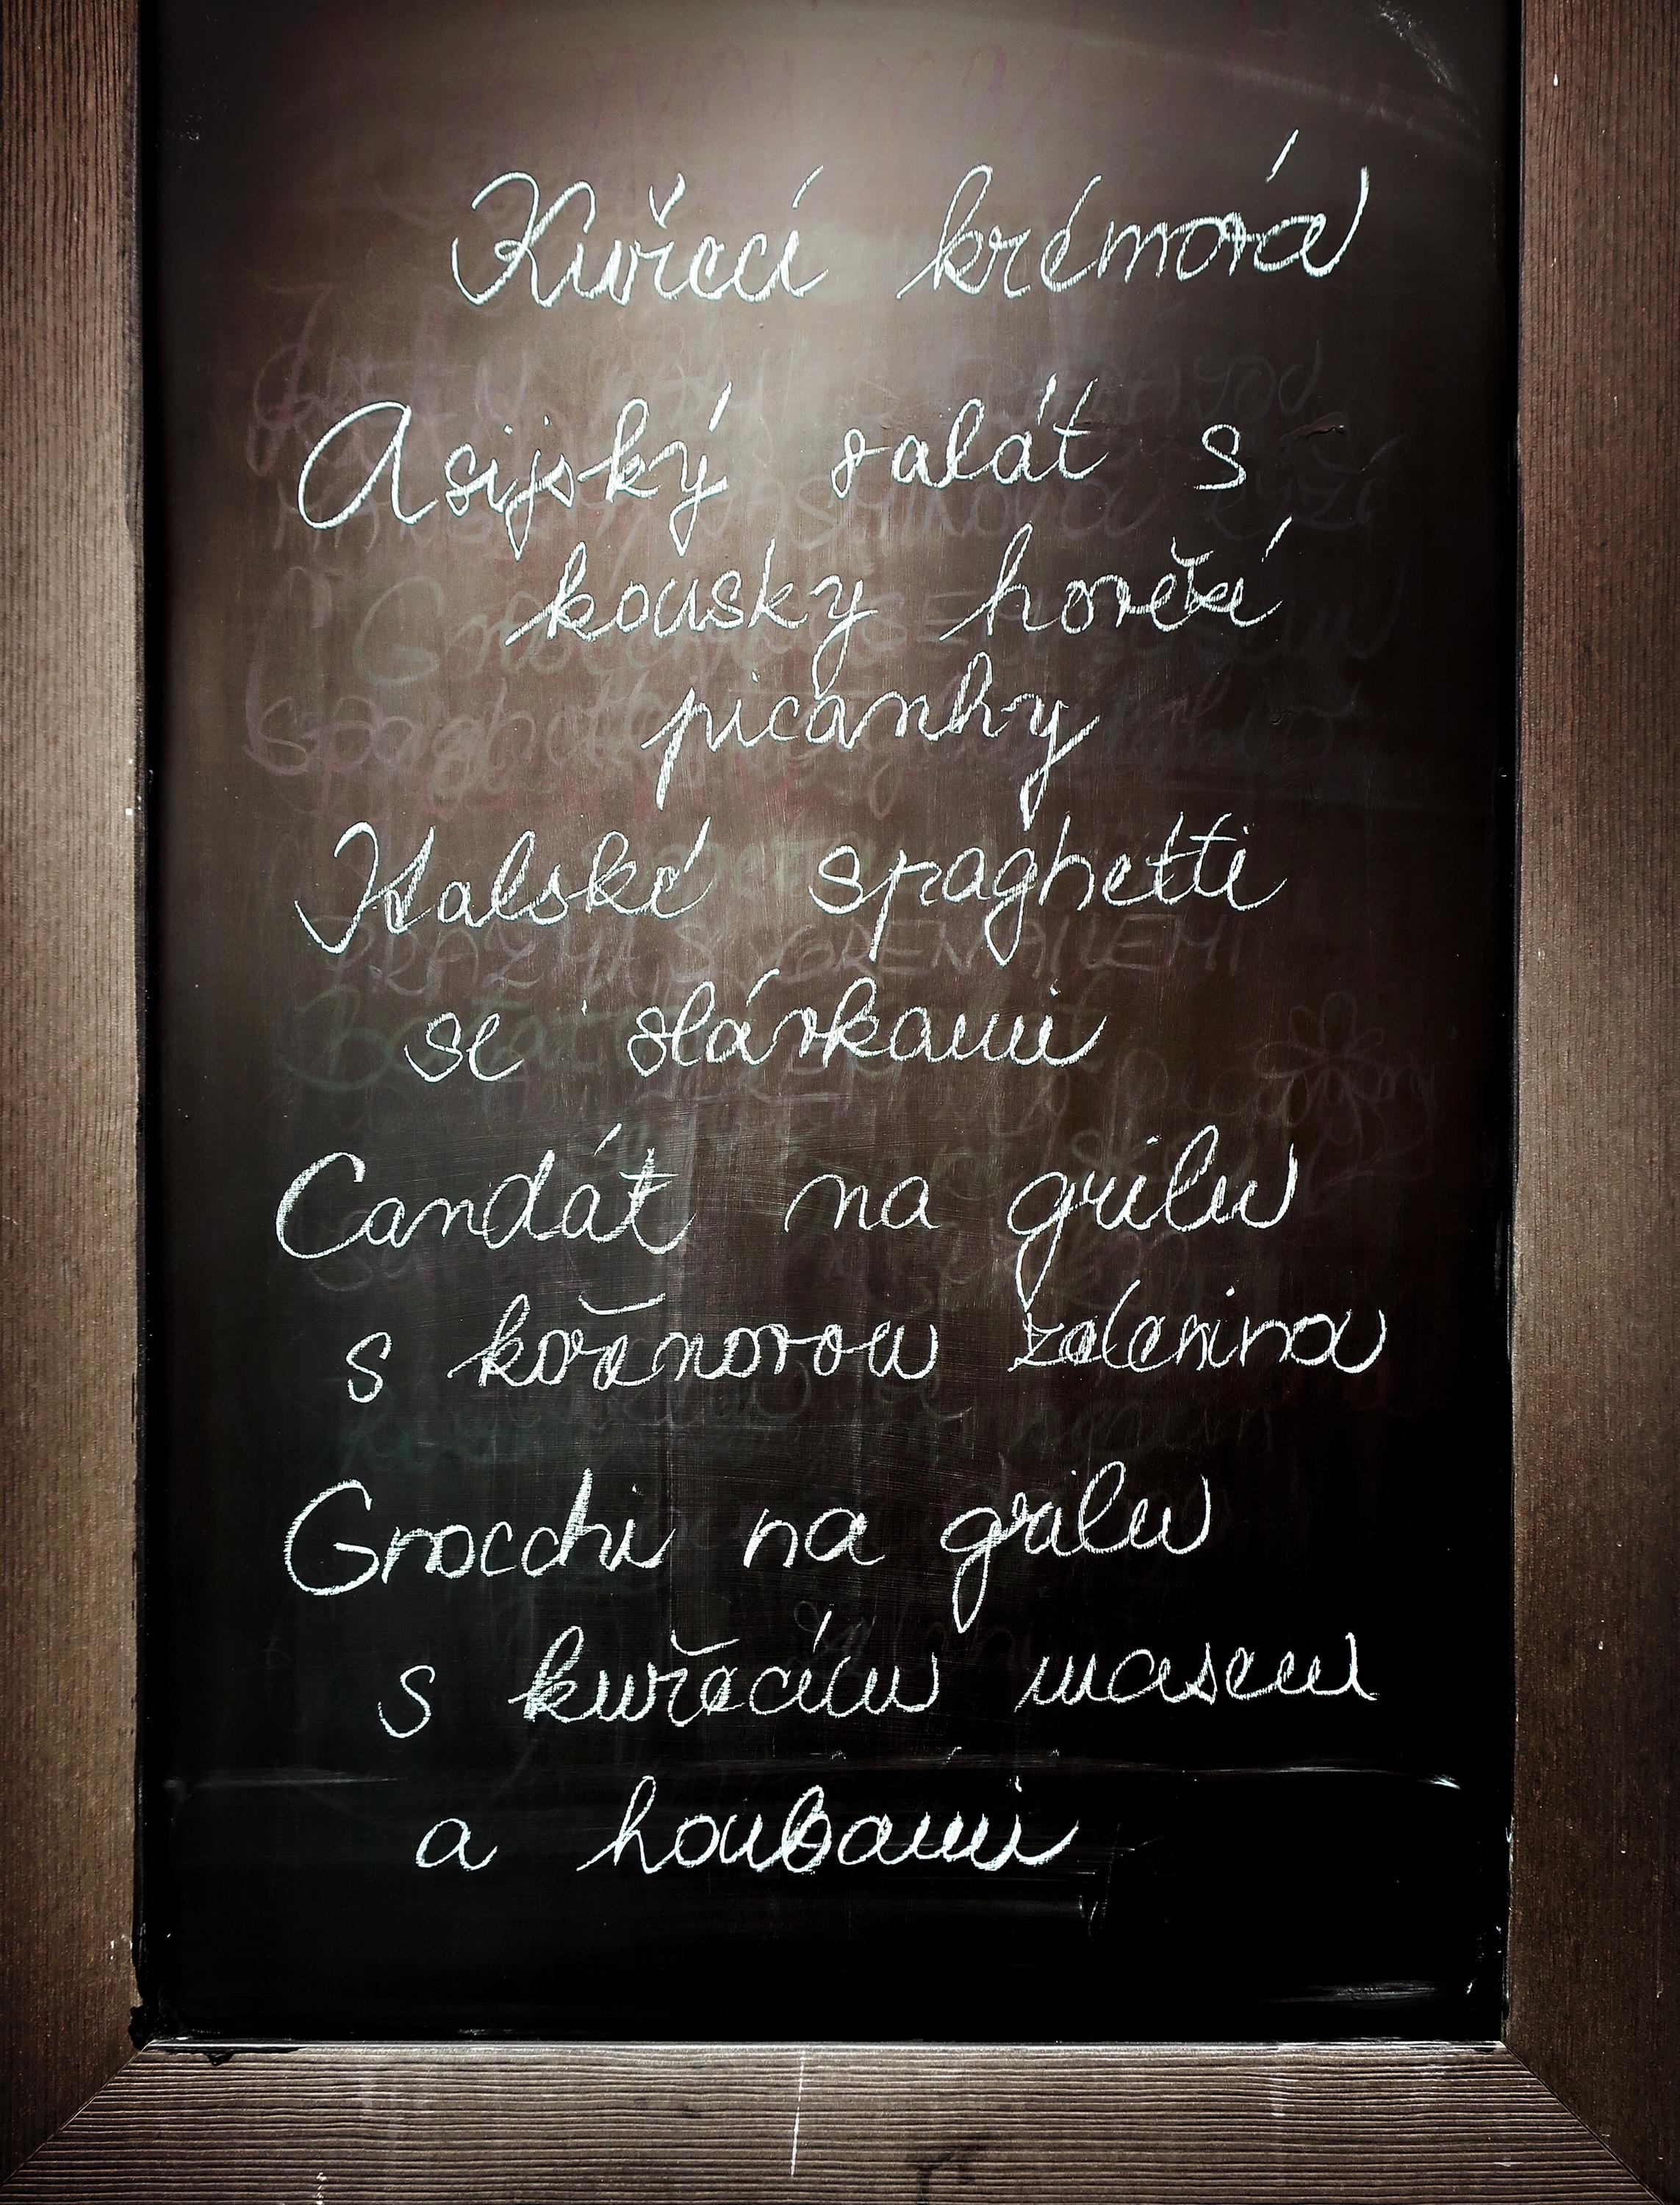 Kuřecí krémová
Asijský salát s
kousky hovězí
picanhy
Italské spaghetti
se slávkami
Candát na grilu
s kořenovou zelenina
Gnocchi na grilu
s kuřecím masem
a houbami